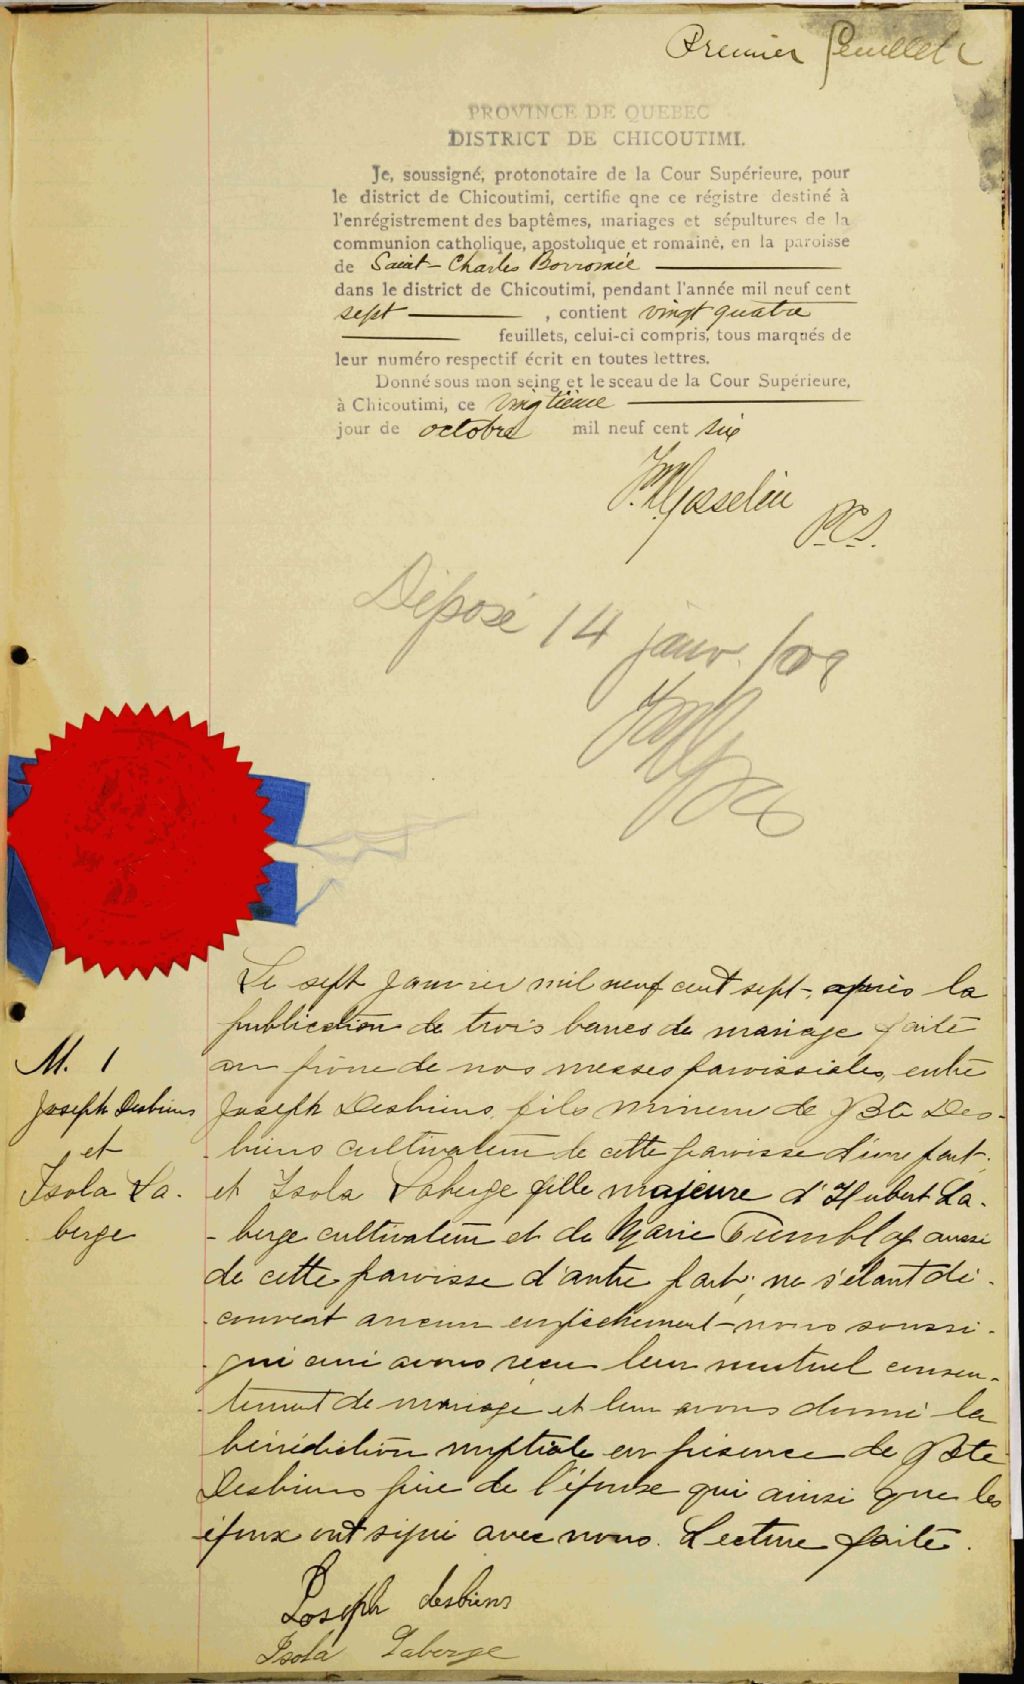 Premier feuillet
PROVINCE DE QUEBEC
DISTRICT DE CHICOUTIMI.
Je, soussigné, protonotaire de la Cour Supérieure, pour
le district de Chicoutimi, certifie qne ce régistre destiné à
l'enrégistrement des baptêmes, mariages et sépultures de la
communion catholique, apostolique et romaine, en la paroisse
de Saint-Charles Borromée
dans le district de Chicoutimi, pendant l'année mil neuf cent
sept , contient vingt quatre
feuillets, celui-ci compris, tous marqués de
leur numéro respectif écrit en toutes lettres.
Donné sous mon seing et le sceau de la Cour Supérieure,
à Chicoutimi, ce vingtième
jour de octobre mil neuf cent six
Gosselin
P.C.S.
Déposé 14 janv. /09
M. 1
Joseph Desbiens
et
Isola La-
berge
Le sept Janvier mil neuf cent sept, après la
publication de trois bancs de mariage faite
au prône de nos messes paroissiales, entre
Joseph Desbiens, fils mineur de Bte Des-
-biens cultivateur de cette paroisse d'une part;
et Isola Laberge fille majeure d'Hubert La-
-berge cultivateur et de Marie Tremblay aussi
de cette paroisse d'autre part; ne s'étant dé-
couvert aucun empêchement nous soussi-
-gné curé avons reçu leur mutuel consen-
-tement de mariage et leur avons donné la
bénédiction nuptiale en présence de Bte
Desbiens père de l'époux qui ainsi que les
époux ont signé avec nous. Lecture faite.
Joseph desbiens
Isola Laberge